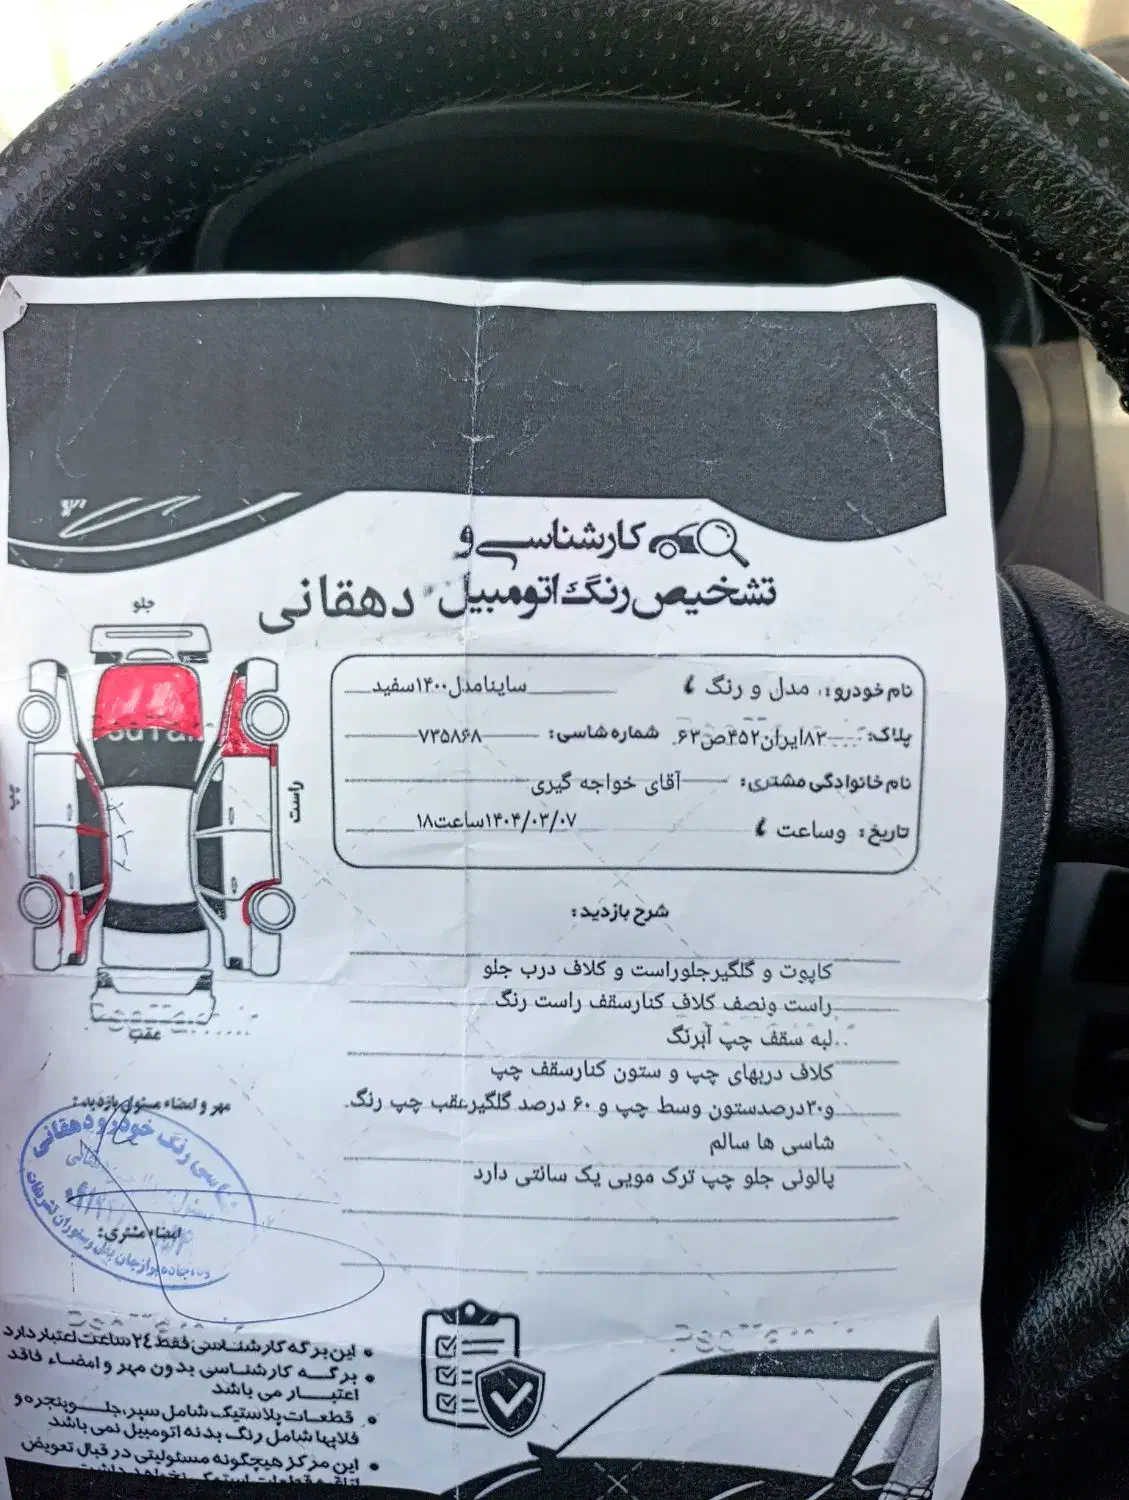 کارشناسی و
تشخیص رنگ اتومبیل دهقانی
جلو
چپ
راست
عقب
نام خودرو؛ مدل و رنگ ؛ ساینامدل۱۴۰۰سفید
پلاک: ۸۳ایران۴۵۲ص۶۳ شماره شاسی: ۷۳۵۸۶۸
نام خانوادگی مشتری: آقای خواجه گیری
تاریخ: وساعت ؛ ۱۴۰۴/۰۳/۰۷ساعت۱۸
شرح بازدید:
کاپوت و گلگیرجلوراست و کلاف درب جلو
راست ونصف کلاف کنارسقف راست رنگ
لبه سقف چپ آبرنگ
کلاف دربهای چپ و ستون کنارسقف چپ
و۳۰درصدستون وسط چپ و ۶۰ درصد گلگیرعقب چپ رنگ.
شاسی ها سالم
پالونی جلو چپ ترک مویی یک سانتی دارد
مهر و امضاء مسئول بازدید:
رنگ خودرو دهقانی
امضاء مشتری:
• این برگه کارشناسی فقط ۲۴ ساعت اعتبار دارد
• برگه کارشناسی بدون مهر و امضاء فاقد
اعتبار می باشد
• قطعات پلاستیک شامل سپر،جلوپنجره و
قلابها شامل رنگ بدنه اتومبیل نمی باشد
• این مرکز هیچگونه مسئولیتی در قبال تعویض